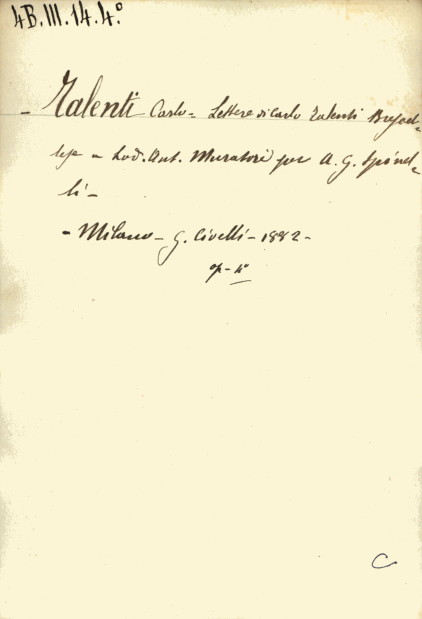 4B.III.14.4º
- Talenti Carlo - Lettere di Carlo Talenti
a Lod. Ant. Muratori per A. G. Spinel-
li -
- Milano - G. Civelli - 1882 -
op - 4º
C